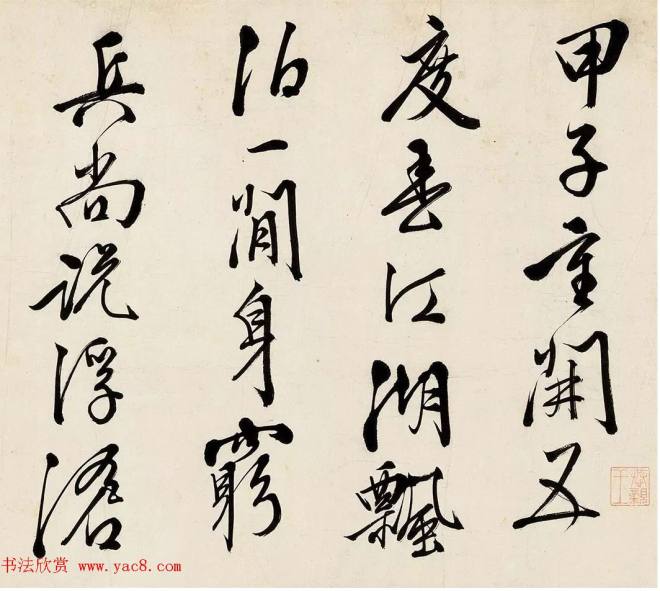 甲子重開五
度春江湖飄
泊一閒身窮
兵尚說浮滄
书法欣赏 www.yac8.com